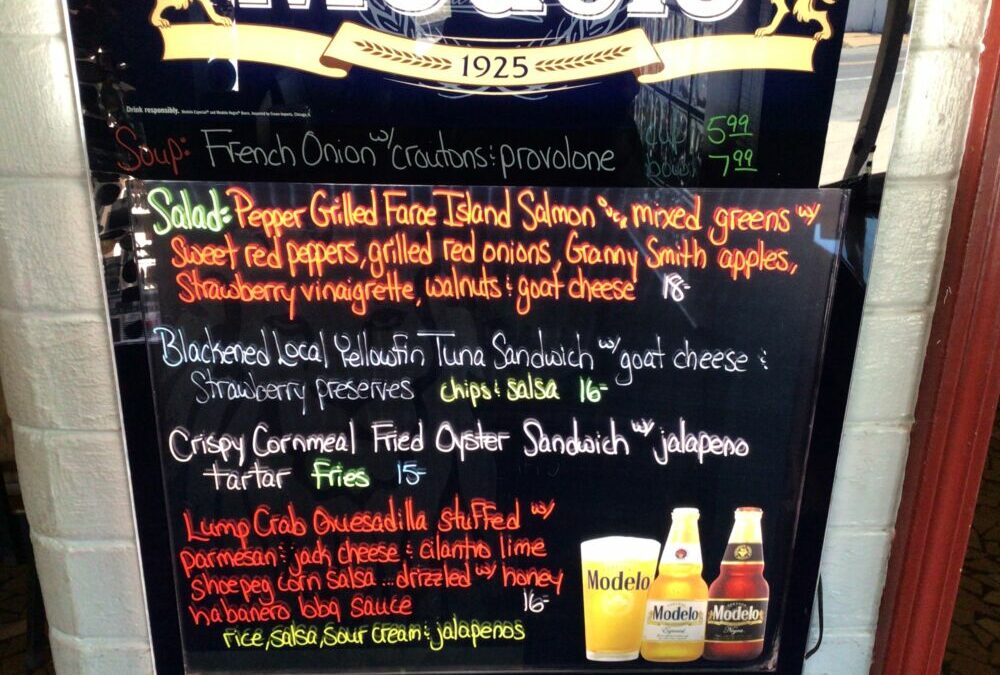 Modelo
1925
Drink responsibly.
Soup: French Onion w/ croutons & provolone
cup 5.99
bowl 7.99
Salad: Pepper Grilled Faroe Island Salmon over mixed greens w/
Sweet red peppers, grilled red onions, Granny Smith apples,
Strawberry vinaigrette, walnuts & goat cheese 18-
Blackened Local Yellowfin Tuna Sandwich w/ goat cheese &
Strawberry preserves chips & salsa 16-
Crispy Cornmeal Fried Oyster Sandwich w/ jalapeno
tartar Fries 15-
Lump Crab Quesadilla stuffed w/
parmesan & jack cheese & cilantro lime
shoepeg corn salsa ... drizzled w/ honey
habanero bbq sauce 16-
rice, salsa, sour cream & jalapenos
Modelo
Modelo
Especial
Modelo
Negra